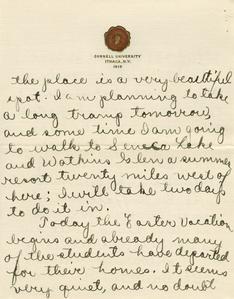 CORNELL UNIVERSITY
ITHACA, N.Y.
the place is a very beautiful
spot. I am planning to take
a long tramp tomorrow,
and some time I am going
to walk to Seneca Lake
and Watkins Glen a summer
resort twenty miles west of
here; I will take two days
to do it in.
Today the Easter vacation
begins and already many
of the students have departed
for their homes. It seems
very quiet, and no doubt